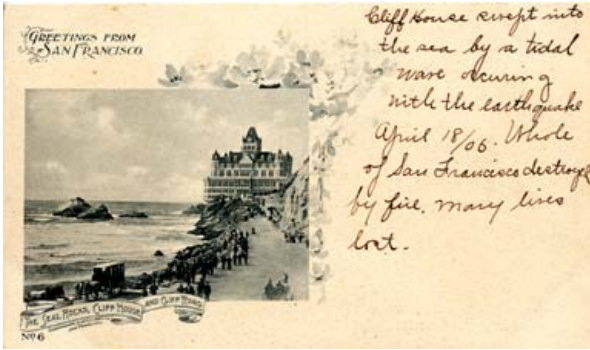 GREETINGS FROM
SAN FRANCISCO.
Cliff House swept into
the sea by a tidal
wave occuring
with the earthquake
April 18/06. Whole
of San Francisco destroyed
by fire. Many lives
lost.
THE SEAL ROCKS, CLIFF HOUSE, AND CLIFF ROAD.
No 6